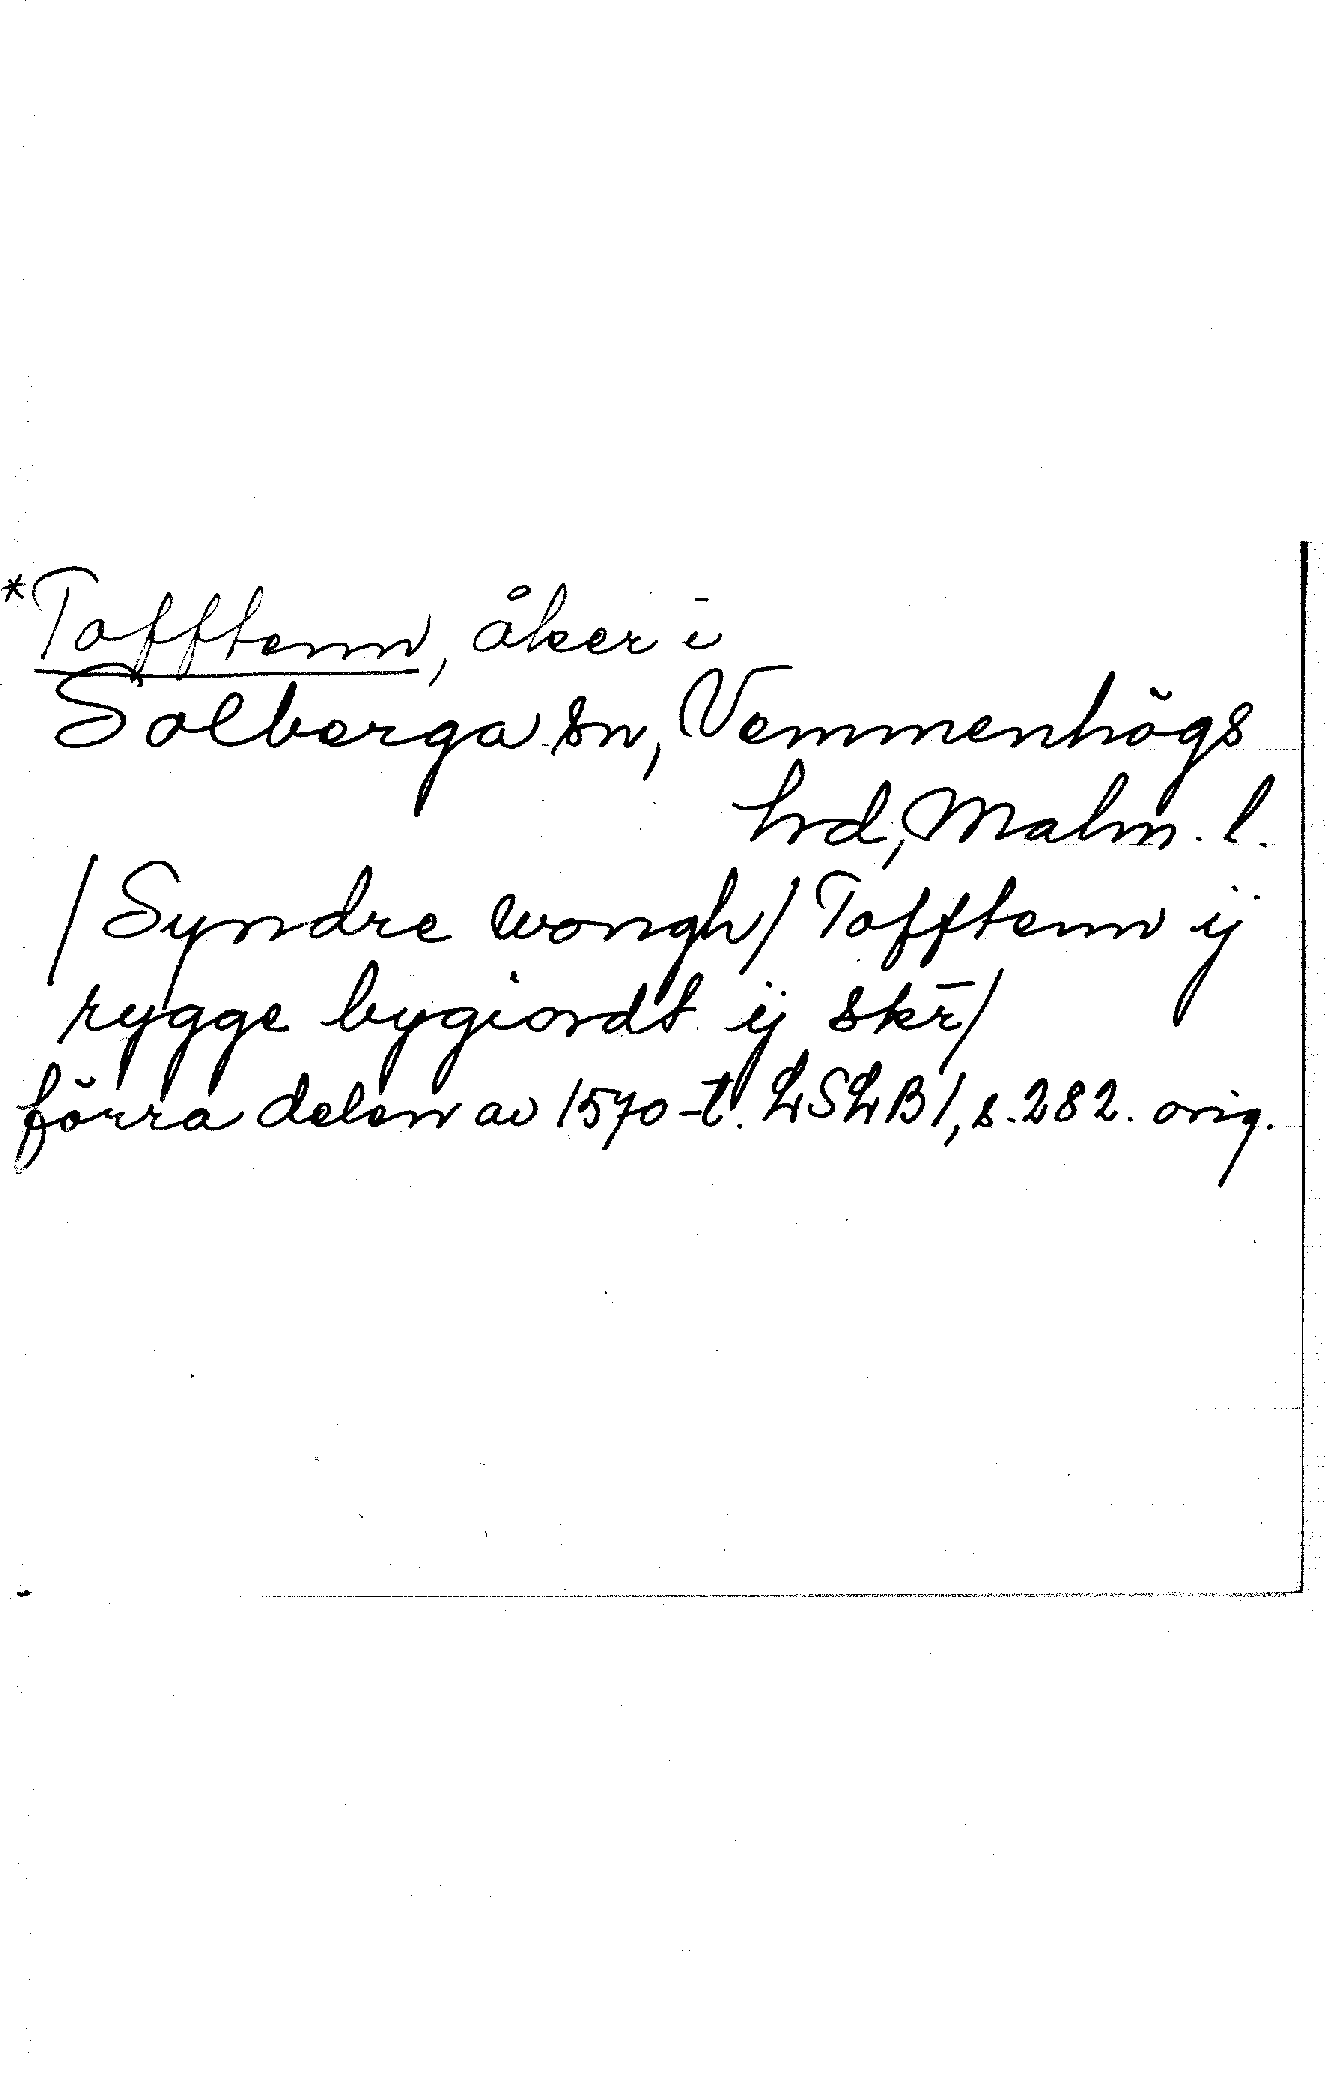 *Tofftenn, åker i
Solberga sn, Vemmenhögs
hd, Malm. l.
/Syndre wongh/ Tofftenn ij
rygge bygiordt ij skr̄/
förra delen av 1570-t. LSLB 1, s. 282. orig.